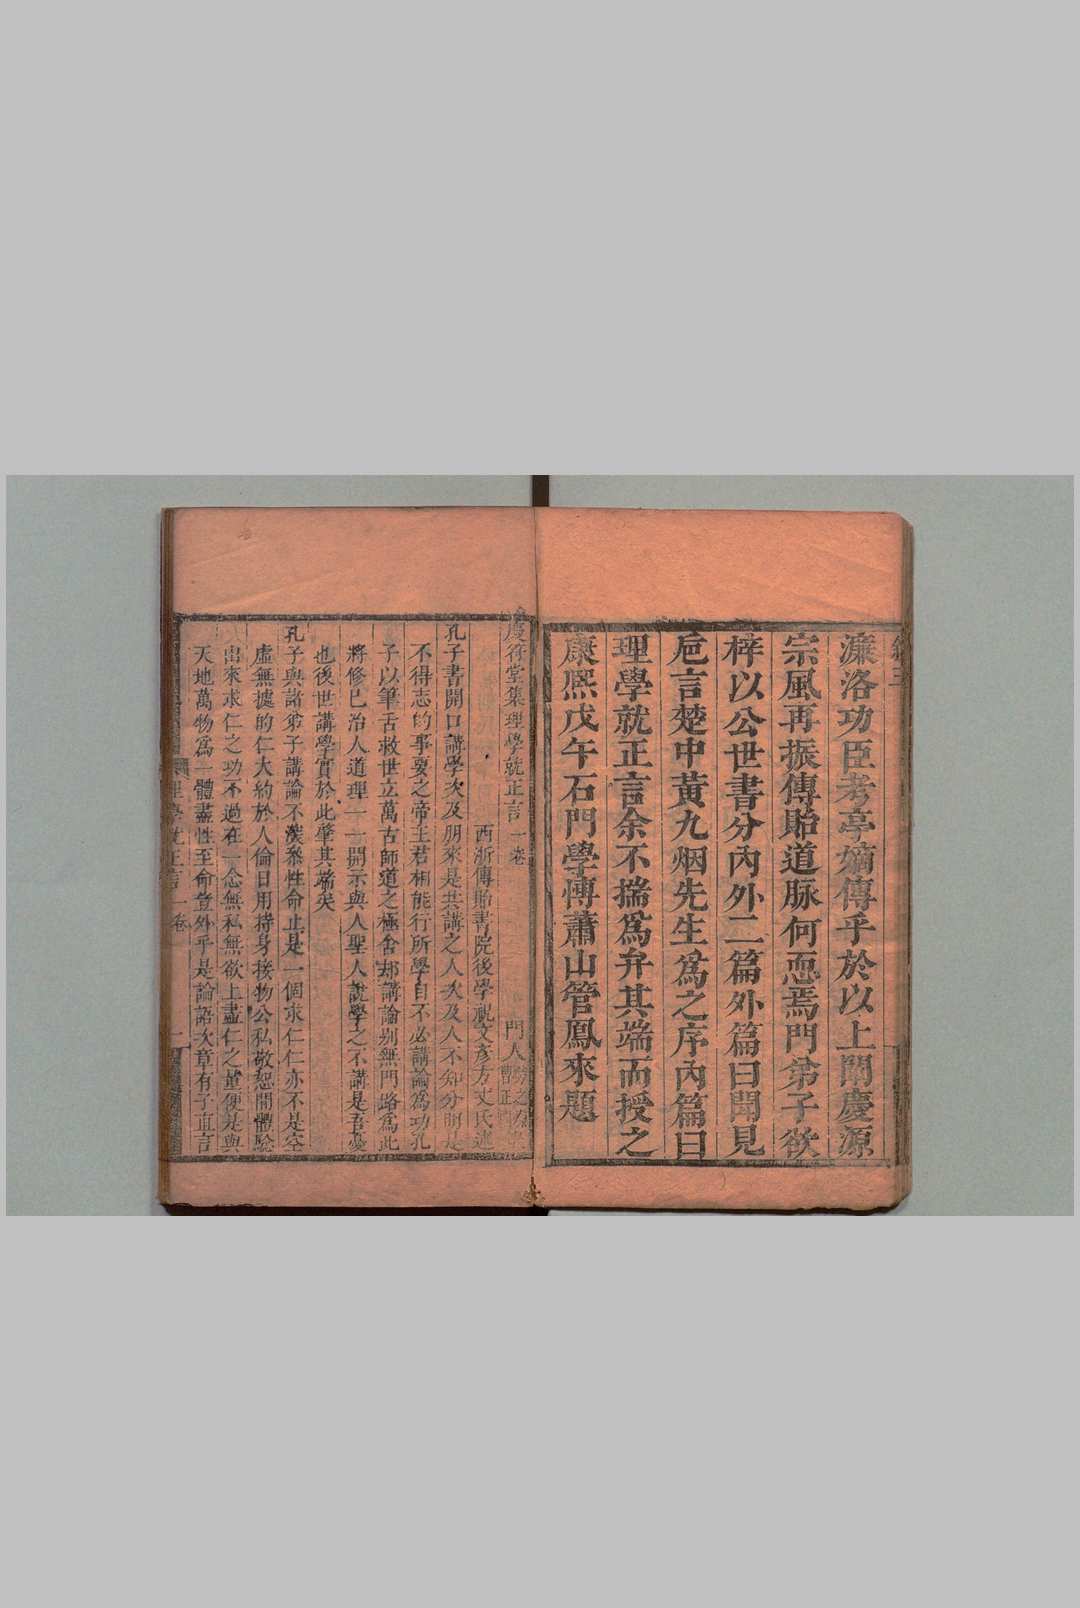 濂洛功臣考亭嫡傳乎於以上闡慶源
宗風再振傳貽道脉何恧焉門弟子欲
梓以公世書分內外二篇外篇曰聞見
巵言楚中黃九烟先生爲之序內篇曰
理學就正言余不揣爲弁其端而授之
康熙戊午石門學博蕭山管鳳來題
慶符堂集理學就正言一卷
西浙傳貽書院後學祝文彥方文氏述
門人
孔子書開口講學次及朋來是共講之人次及人不知分明是
不得志的事要之帝王君相能行所學自不必講論爲功孔
子以筆舌救世立萬古師道之極舍却講論別無門路爲此
將修己治人道理一一開示與人聖人說學之不講是吾憂
也後世講學實於此肇其端矣
孔子與諸弟子講論不濫參性命止是一個求仁仁亦不是空
虛無據的仁大約於人倫日用持身接物公私敬恕間體驗
出來求仁之功不過在一念無私無欲上盡仁之量便是與
天地萬物爲一體盡性至命豈外乎是論語次章有子直言
理學就正言一卷
一